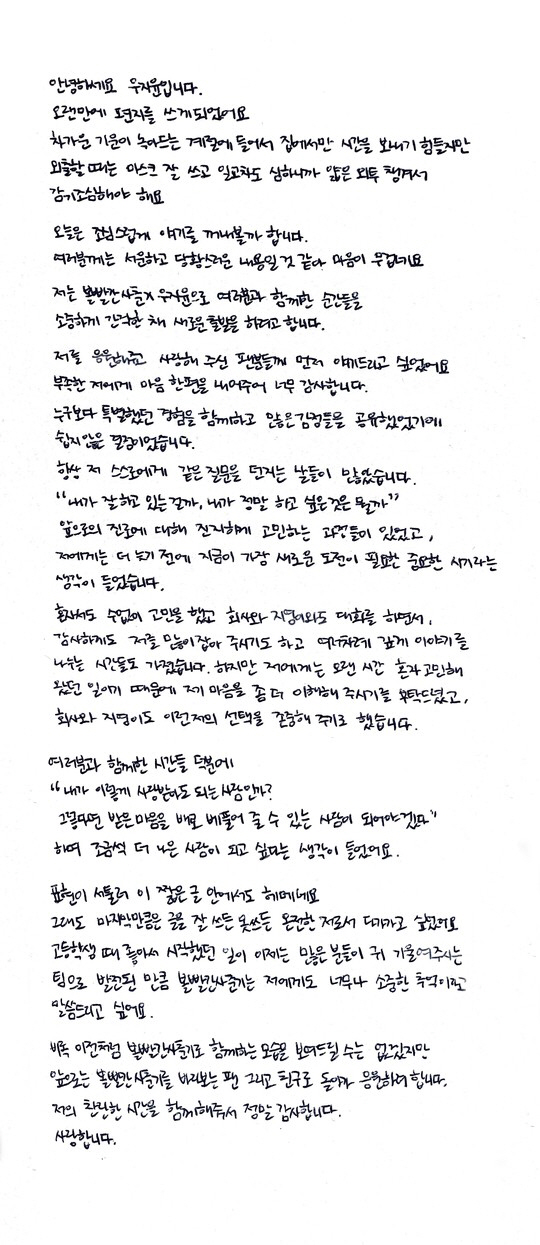 안녕하세요 우지윤입니다.
오랜만에 편지를 쓰게되었어요
차가운 기운이 녹아드는 계절에 들어서 집에서만 시간을 보내기 힘들지만
외출할 때는 마스크 잘 쓰고 일교차도 심하니까 얇은 외투 챙겨서
감기조심해야 해요
오늘은 조심스럽게 얘기를 꺼내볼까 합니다.
여러분께는 서운하고 당황스러운 내용일 것 같아 마음이 무겁네요
저는 볼빨간사춘기 우지윤으로 여러분과 함께한 순간들을
소중하게 간직한 채 새로운 출발을 하려고 합니다.
저를 응원해주고 사랑해 주신 팬분들께 먼저 얘기드리고 싶었어요
부족한 저에게 마음 한편을 내어주어 너무 감사합니다.
누구보다 특별했던 경험을 함께하고 많은 감정들을 공유했었기에
쉽지 않은 결정이었습니다.
항상 저 스스로에게 같은 질문을 던지는 날들이 많았습니다.
“내가 잘 하고 있는걸까, 내가 정말 하고 싶은 것은 뭘까”
앞으로의 진로에 대해 진지하게 고민하는 과정들이 있었고,
저에게는 더 늦기 전에 지금이 가장 새로운 도전이 필요한 중요한 시기라는
생각이 들었습니다.
혼자서도 수없이 고민을 했고 회사와 지영이와도 대화를 하면서,
감사하게도 저를 많이 잡아 주시기도 하고 여러차례 깊게 이야기를
나누는 시간들도 가졌습니다. 하지만 저에게는 오랜 시간 혼자 고민해
왔던 일이기 때문에 제 마음을 좀 더 이해해 주시기를 부탁드렸고,
회사와 지영이도 이런 저의 선택을 존중해 주기로 했습니다.
여러분과 함께한 시간들 덕분에
“내가 이렇게 사랑받아도 되는 사람인가?
그렇다면 받은 마음을 배로 베풀어 줄 수 있는 사람이 되어야겠다”
하며 조금씩 더 나은 사람이 되고 싶다는 생각이 들었어요.
표현이 서툴러 이 짧은 글 안에서도 헤매네요
그래도 마지막만큼은 글을 잘 쓰든 못쓰든 온전한 저로서 다가가고 싶었어요
고등학생 때 좋아서 시작했던 일이 이제는 많은 분들이 귀 기울여주시는
팀으로 발전된 만큼 볼빨간사춘기는 저에게도 너무나 소중한 추억이라고
말씀드리고 싶어요.
비록 이전처럼 볼빨간사춘기로 함께하는 모습을 보여드릴 수는 없겠지만
앞으로는 볼빨간사춘기를 바라보는 팬 그리고 친구로 돌아가 응원하려 합니다.
저의 찬란한 시간을 함께해줘서 정말 감사합니다.
사랑합니다.